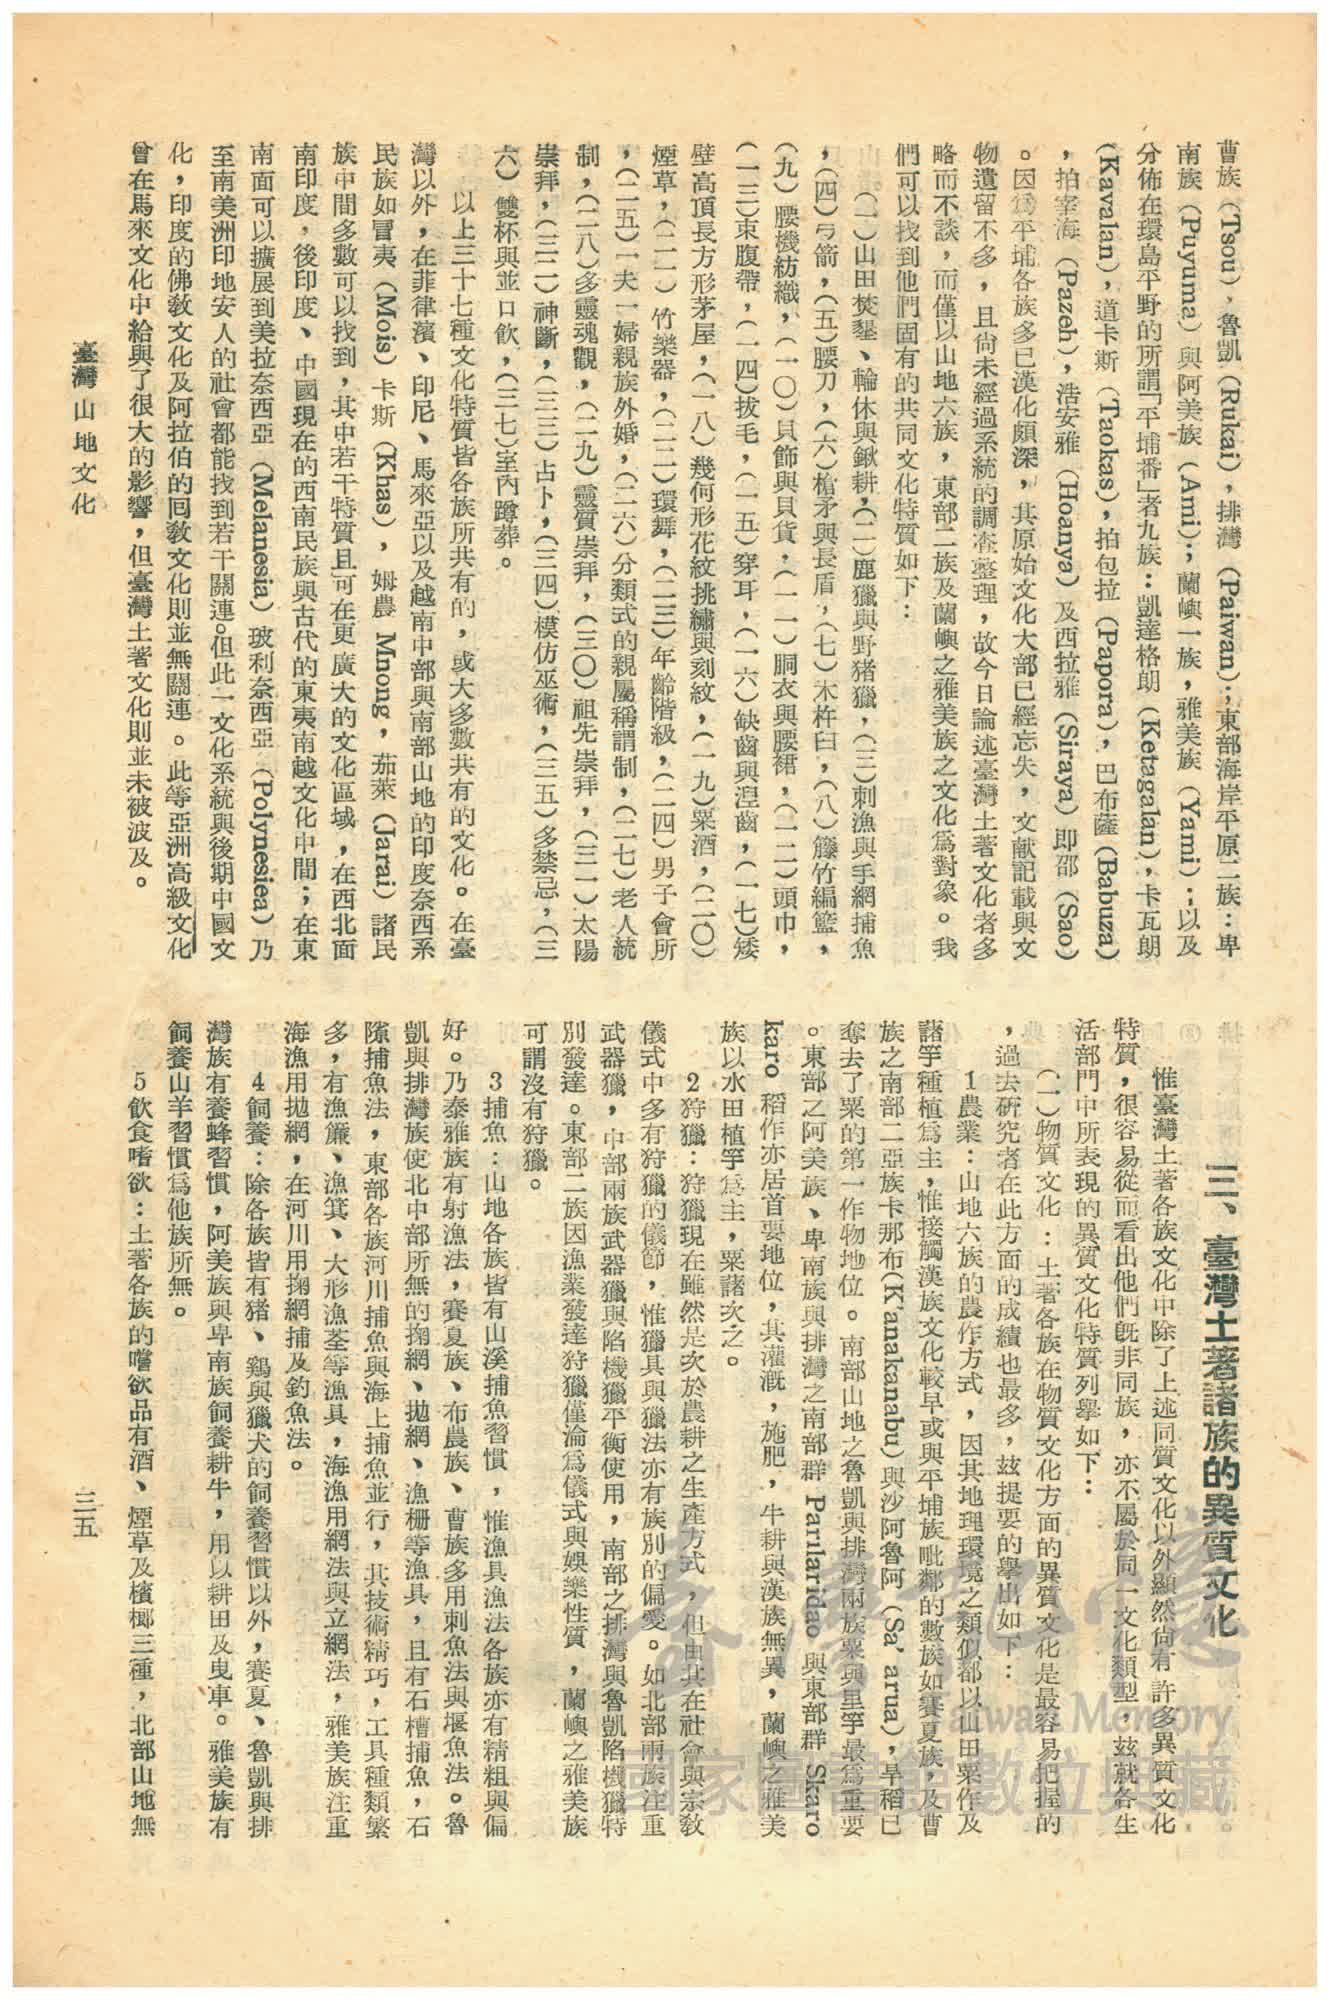 曹族（Tsou），魯凱（Rukai），排灣（Paiwan）；東部海岸平原二族：卑
南族（Puyuma）與阿美族（Ami）；蘭嶼一族，雅美族（Yami）；以及
分佈在環島平野的所謂「平埔番」者九族：凱達格朗（Ketagalan），卡瓦朗
（Kavalan），道卡斯（Taokas），拍包拉（Papora），巴布薩（Babuza）
，拍宰海（Pazeh），浩安雅（Hoanya）及西拉雅（Siraya）即邵（Sao）
。因爲平埔各族多已漢化頗深，其原始文化大部已經忘失，文献記載與文
物遺留不多，且尙未經過系統的調查整理，故今日論述臺灣土著文化者多
略而不談，而僅以山地六族，東部二族及蘭嶼之雅美族之文化爲對象。我
們可以找到他們固有的共同文化特質如下：
（一）山田焚墾、輪休與鍬耕，（二）鹿獵與野猪獵，（三）刺漁與手網捕魚
，（四）弓箭，（五）腰刀，（六）槍矛與長盾，（七）木杵臼，（八）籐竹編籃，
（九）腰機紡織，（一〇）貝飾與貝貨，（一一）胴衣與腰裙，（一二）頭巾，
（一三）束腹帶，（一四）拔毛，（一五）穿耳，（一六）缺齒與涅齒，（一七）矮
壁高頂長方形茅屋，（一八）幾何形花紋挑繡與刻紋，（一九）粟酒，（二〇）
煙草，（二一）竹樂器，（二二）環舞，（二三）年齡階級，（二四）男子會所
，（二五）一夫一婦親族外婚，（二六）分類式的親屬稱謂制，（二七）老人統
制，（二八）多靈魂觀，（二九）靈質崇拜，（三〇）祖先崇拜，（三一）太陽
崇拜，（三二）神斷，（三三）占卜，（三四）模仿巫術，（三五）多禁忌，（三
六）雙杯與並口飲，（三七）室內蹲葬。
以上三十七種文化特質皆各族所共有的，或大多數共有的文化。在臺
灣以外，在菲律濱、印尼、馬來亞以及越南中部與南部山地的印度奈西系
民族如冒夷（Mois）卡斯（Khas），姆農 Mnong，茄萊（Jarai）諸民
族中間多數可以找到，其中若干特質且可在更廣大的文化區域，在西北面
南印度，後印度、中國現在的西南民族與古代的東夷南越文化中間；在東
南面可以擴展到美拉奈西亞（Melanesia）玻利奈西亞（Polynesiea）乃
至南美洲印地安人的社會都能找到若干關連。但此一文化系統與後期中國文
化，印度的佛敎文化及阿拉伯的囘敎文化則並無關連。此等亞洲高級文化
曾在馬來文化中給與了很大的影響，但臺灣土著文化則並未被波及。
三、臺灣土著諸族的異質文化
惟臺灣土著各族文化中除了上述同質文化以外顯然尙有許多異質文化
特質，很容易從而看出他們旣非同族，亦不屬於同一文化類型，玆就各生
活部門中所表現的異質文化特質列擧如下：
（一）物質文化：土著各族在物質文化方面的異質文化是最容易把握的
，過去研究者在此方面的成績也最多，玆提要的擧出如下：
1農業：山地六族的農作方式，因其地理環境之類似都以山田粟作及
諸芋種植爲主，惟接觸漢族文化較早或與平埔族毗鄰的數族如賽夏族，及曹
族之南部二亞族卡那布（K'anakanabu）與沙阿魯阿（Sa'arua），旱稻已
奪去了粟的第一作物地位。南部山地之魯凱與排灣兩族粟與里芋最爲重要
。東部之阿美族、卑南族與排灣之南部群 Parilaridao 與東部群 Skaro
karo 稻作亦居首要地位，其灌漑，施肥，牛耕與漢族無異，蘭嶼之雅美
族以水田植芋爲主，粟諸次之。
2狩獵：狩獵現在雖然是次於農耕之生產方式，但由其在社會與宗敎
儀式中多有狩獵的儀節，惟獵具與獵法亦有族別的偏愛。如北部兩族注重
武器獵，中部兩族武器獵與陷機獵平衡使用，南部之排灣與魯凱陷機獵特
別發達。東部二族因漁業發達狩獵僅淪爲儀式與娛樂性質，蘭嶼之雅美族
可謂沒有狩獵。
3捕魚：山地各族皆有山溪捕魚習慣，惟漁具漁法各族亦有精粗與偏
好。乃泰雅族有射漁法，賽夏族、布農族、曹族多用刺魚法與堰魚法。魯
凱與排灣族使北中部所無的掬網、拋網、漁栅等漁具，且有石槽捕魚，石
隙捕魚法，東部各族河川捕魚與海上捕魚並行，其技術精巧，工具種類繁
多，有漁簾、漁箕、大形漁荃等漁具，海漁用網法與立網法，雅美族注重
海漁用拋網，在河川用掬網捕及釣魚法。
4飼養：除各族皆有猪、鷄與獵犬的飼養習慣以外，賽夏、魯凱與排
灣族有養蜂習慣，阿美族與卑南族飼養耕牛，用以耕田及曳車。雅美族有
飼養山羊習慣爲他族所無。
5飮食嗜欲：土著各族的嗜欲品有酒、煙草及檳榔三種，北部山地無
臺灣山地文化
三五
臺灣記憶
Taiwan Memory
國家圖書館數位典藏